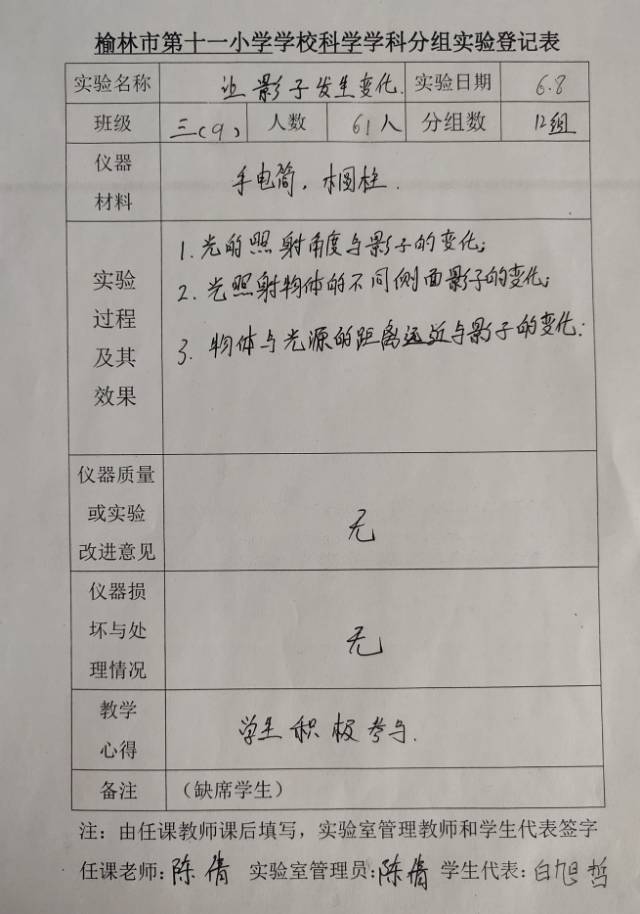 榆林市第十一小学学校科学学科分组实验登记表
实验名称 让影子发生变化. 实验日期 6.8
班级 三(9) 人数 61人 分组数 12组
仪器
材料
手电筒, 木圆柱.
实验
过程
及其
效果
1.光的照射角度与影子的变化;
2.光照射物体的不同侧面影子的变化;
3.物体与光源的距离远近与影子的变化.
仪器质量
或实验
改进意见
无
仪器损
坏与处
理情况
无
教学
心得
学生积极参与.
备注 (缺席学生)
注：由任课教师课后填写，实验室管理教师和学生代表签字
任课老师:陈倩 实验室管理员:陈倩 学生代表:白旭哲